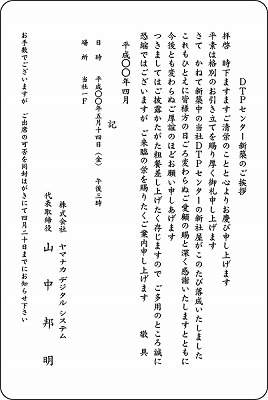 DTPセンター新築のご挨拶
拝啓　時下ますますご清栄のことと心よりお慶び申し上げます
平素は格別のお引き立てを賜り厚く御礼申し上げます
さて　かねて新築中の当社DTPセンターの新社屋がこのたび落成いたしました
これもひとえに皆様方の日ごろ変わらぬご愛顧の賜と深く感謝いたしますとともに
今後とも変わらぬご厚誼のほどお願い申しあげます
つきましてはご披露かたがた粗餐差し上げたく存じますので　ご多用のところ誠に
恐縮ではございますが　ご来臨の栄を賜りたくご案内申し上げます　　敬　具
平成〇〇年四月
記
日　時　平成〇〇年五月十四日（金）　午後三時
場　所　当社一F
株式会社　ヤマナカデジタルシステム
代表取締役　山　中　邦　明
お手数でございますが　ご出席の可否を同封はがきにて四月二十日までにお知らせ下さい